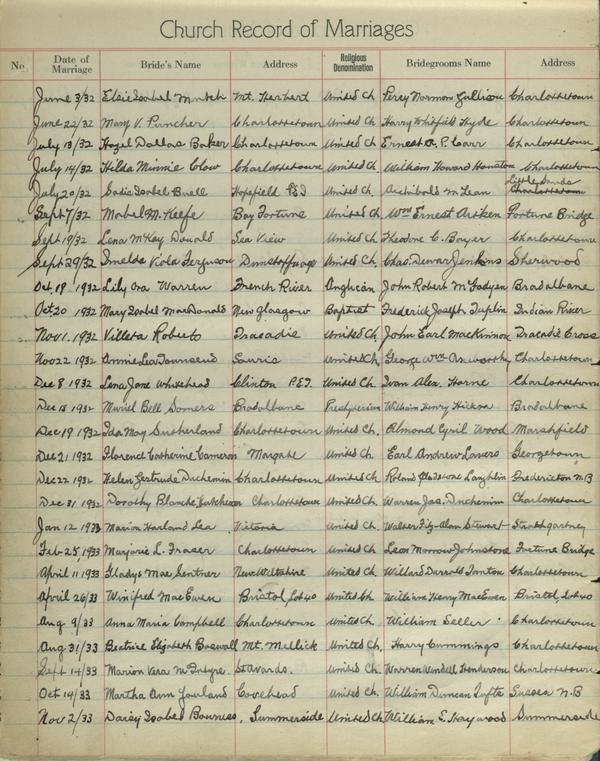 Church Record of Marriages
No. Date of Marriage Bride's Name Address Religious Denomination Bridegrooms Name Address
June 3/32 Elsie Isabel Mutch Mt. Herbert United Ch. Percy Norman Jullison Charlottetown
June 22/32 Mary V. Puncher Charlottetown United Ch. Harry Whitfield Hyde Charlottetown
July 13/32 Hazel Dallas Baker Charlottetown United Ch. Ernest P. Carr Charlottetown
July 14/32 Hilda Minnie Clow Charlottetown United Ch. William Howard Houston Charlottetown
July 20/32 Sadie Isabel Buell Hopefield P.E.I United Ch. Archibald McLean Little Sands Charlottetown
Sept 7/32 Mabel M. Keefe Bay Fortune United Ch. Wm Ernest Aitken Fortune Bridge
Sept 19/32 Lena McKay Donald Sea View United Ch. Theodore C. Bowyer Charlottetown
Sept 29/32 Imelda Viola Ferguson Dunstaffnage United Ch. Chas. Dewar Jenkins Sherwood
Oct. 19 1932 Lily Ora Warren French River Anglican John Robert McFadyen Bradalbane
Oct 20 1932 Mary Isabel MacDonald New Glasgow Baptist Frederick Joseph Tuplin Indian River
Nov 1. 1932 Villeta Roberts Tracadie United Ch. John Earl MacKinnon Tracadie Cross
Nov 22 1932 Annie Lea Townsend Souris United Ch. George Wm Charlottetown
Dec 8 1932 Lena Jane Whitehead Clinton P.E.I. United Ch. Ivan Alex. Horne Charlottetown
Dec 15 1932 Muriel Bell Somers Bradalbane Presbyterian William Henry Hickox Bradalbane
Dec 19 1932 Ida May Sutherland Charlottetown United Ch. Almond Cyril Wood Marshfield
Dec 21 1932 Florence Catherine Cameron Margate United Ch. Earl Andrew Lavers Georgetown
Dec 22 1932 Helen Gertrude Duchemin Charlottetown United Ch. Roland Gladstone Laughlin Fredericton N.B
Dec 31 1932 Dorothy Blanche Hutcheson Charlottetown United Ch. Warren Jas. Duchemin Charlottetown
Jan 12 1933 Marion Harland Lea Victoria United Ch. Walter Fitz-Alan Stewart Strathgartney
Feb 25, 1933 Marjorie L. Fraser Charlottetown United Ch. Leon Morrow Johnstone Fortune Bridge
April 11 1933 Gladys Mae Sentner New Wiltshire United Ch. Willard Darrold Tanton Charlottetown
April 26/33 Winifred MacEwen Bristol, Lot 40 United Ch William Henry MacEwen Bristol, Lot 40
Aug 9/33 Anna Maria Campbell Charlottetown United Ch. William Seller Charlottetown
Aug 31/33 Beatrice Elizabeth Boswall Mt. Mellick United Ch. Harry Cummings Charlottetown
Sept 14/33 Marion Vera McIntyre St Avards. United Ch. Warren Wendell Henderson Charlottetown
Oct 14/33 Martha Ann Covehead United Ch. William Duncan Tufts Sussex N.B
Nov 2/33 Daisy Isabel Bowness, Summerside United Ch. William E. Haywood Summerside